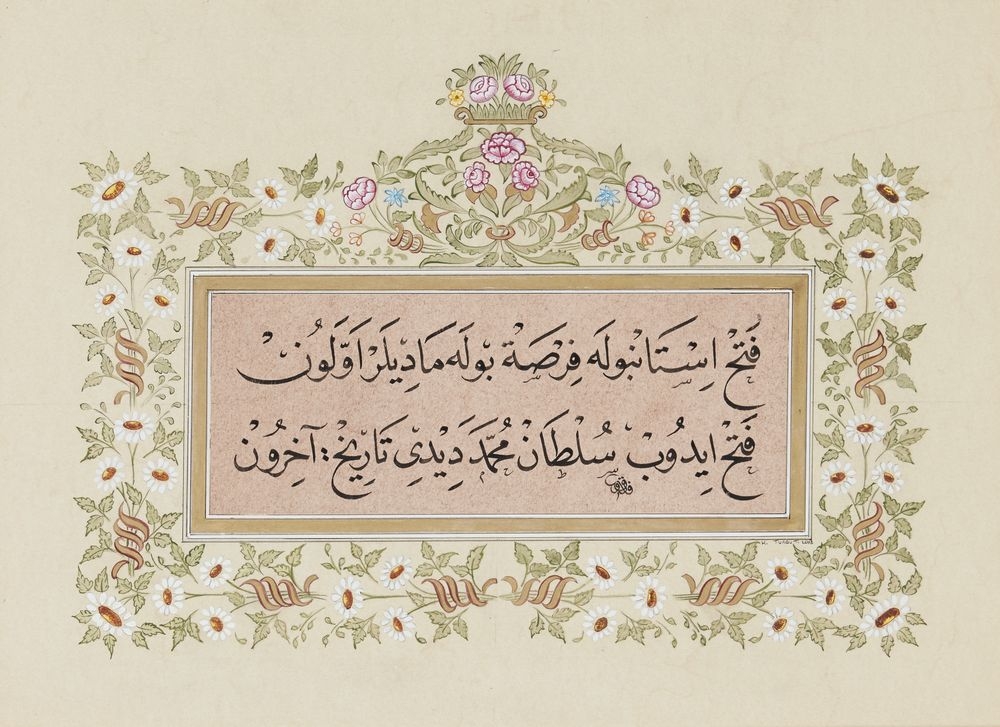 فَتْحِ اِسْتَانْبُولَه فِرْصَتْ بُولَه مَادِيلَرْ اَوَّلُونْ
فَتْح اِيدُوبْ سُلْطَانْ مُحَمَّدْ دَيْدِى تَارِيخْ : آخِرُونْ